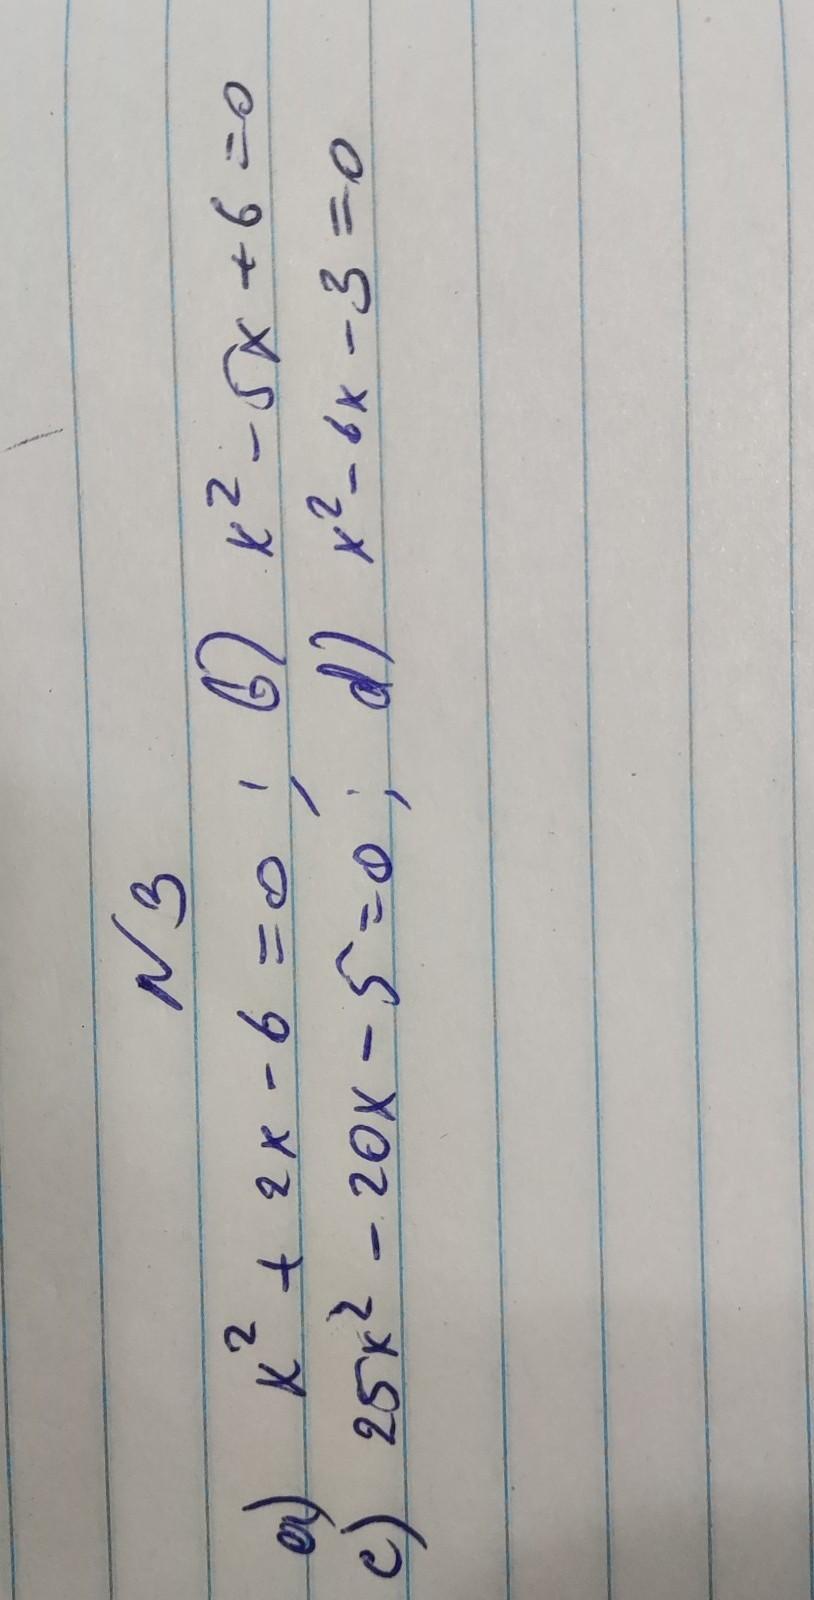 N3
a) x² + 2x - 6 = 0 ; b) x² - 5x + 6 = 0
c) 25x² - 20x - 5 = 0 ; d) x² - 6x - 3 = 0